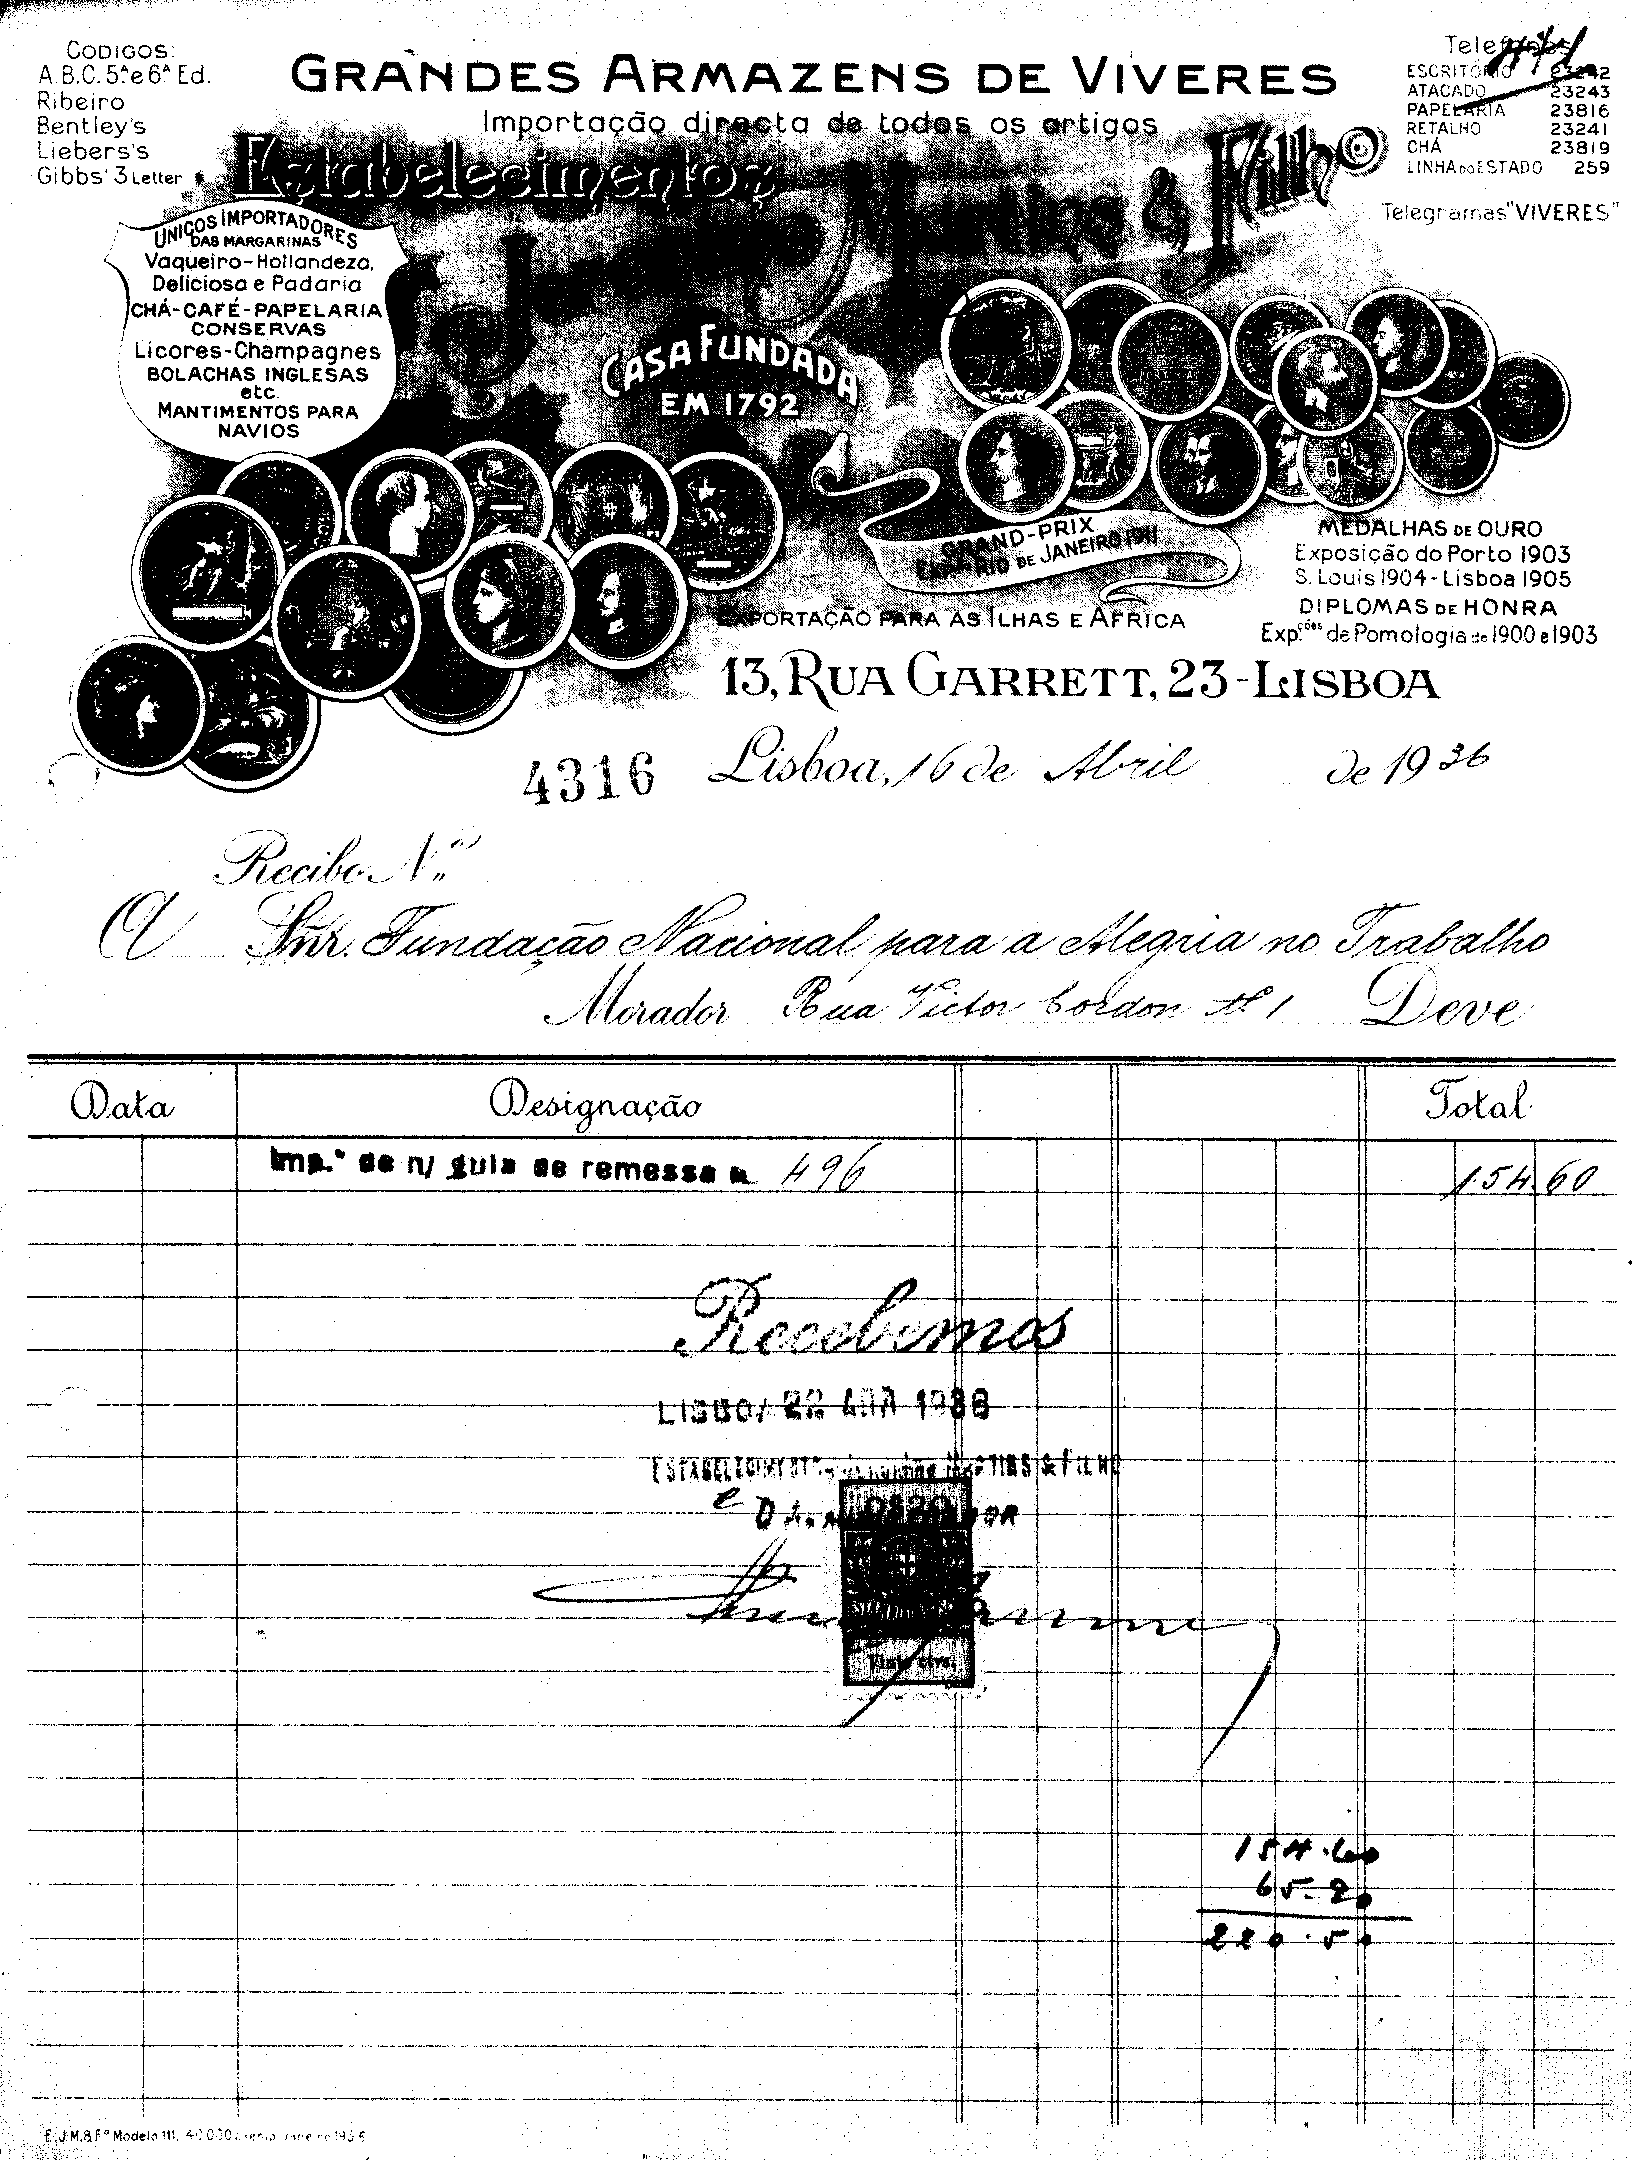 CODIGOS:
A.B.C. 5ª e 6ª Ed.
Ribeiro
Bentley's
Liebers's
Gibbs' 3 Letter
GRANDES ARMAZENS DE VIVERES
Importação directa de todos os artigos
Estabelecimentos
Jeronimo Martins & Filho
Telefones
ESCRITÓRIO 23242
ATACADO 23243
PAPELARIA 23816
RETALHO 23241
CHÁ 23819
LINHA DO ESTADO 259
Telegramas "VIVERES"
UNICOS IMPORTADORES
DAS MARGARINAS
Vaqueiro-Hollandeza,
Deliciosa e Padaria
CHÁ-CAFÉ-PAPELARIA
CONSERVAS
Licores-Champagnes
BOLACHAS INGLESAS
etc.
MANTIMENTOS PARA
NAVIOS
CASA FUNDADA
EM 1792
GRAND-PRIX
RIO DE JANEIRO 1911
EXPORTAÇÃO PARA AS ILHAS E AFRICA
MEDALHAS DE OURO
Exposição do Porto 1903
S. Louis 1904-Lisboa 1905
DIPLOMAS DE HONRA
Exp.ções de Pomologia de 1900 e 1903
13, RUA GARRETT, 23-LISBOA
4316 Lisboa, 16 de Abril de 1936
Recibo N.º
A Snr. Fundação Nacional para a Alegria no Trabalho
Morador Rua Victor Cordon Nº 1 Deve
Data Designação Total
Imp.º de n/ guia de remessa n. 496 154.60
Recebemos
LISBOA 22 ABR 1936
ESTABELECIMENTOS Jeronimo MARTINS & FILHO
154.60
65.90
220.50
E.J.M.&F.º Modelo 111,